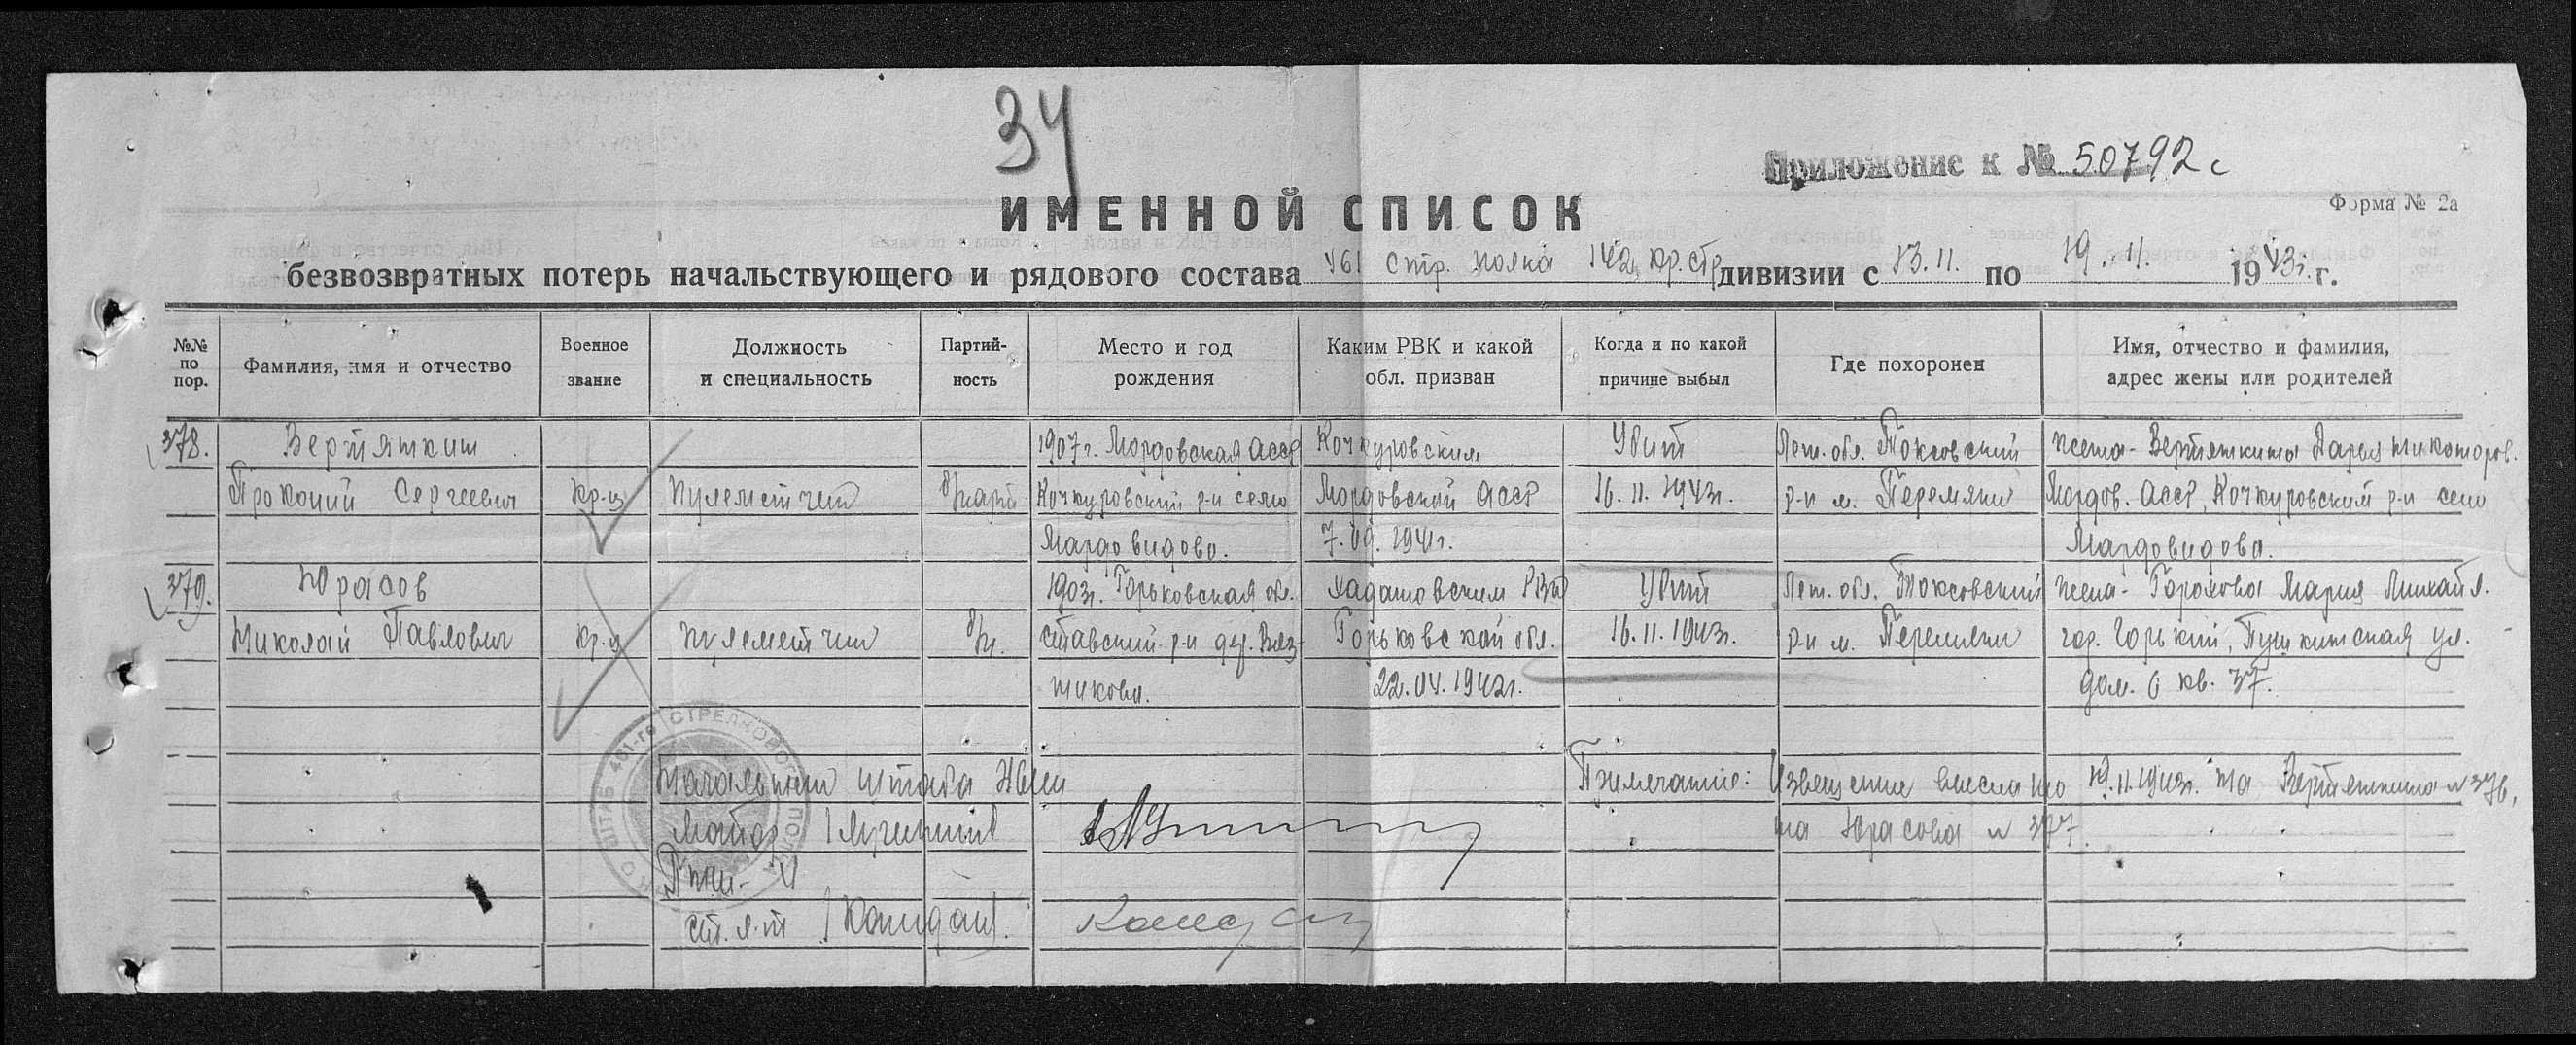 34
Приложение к № 50792с
Форма № 2а
ИМЕННОЙ СПИСОК
безвозвратных потерь начальствующего и рядового состава 461 стр. полка 142 кр. стр. дивизии с 13.11. по 19.11. 1943 г.
№№ по пор.
Фамилия, имя и отчество
Военное звание
Должность и специальность
Партий-ность
Место и год рождения
Каким РВК и какой обл. призван
Когда и по какой причине выбыл
Где похоронен
Имя, отчество и фамилия, адрес жены или родителей
378. Вертяткин 1907 г. Мордовская АССР Кочкуровским Убит Лен. обл. Токсовский жена - Вертяткина Дарья
Прокопий Сергеевич кр-ц пулеметчик Кочкуровский р-н село Мордовской АССР 16.11.1943г. р-н м. Перемяки Мордов. АССР, Кочкуровский р-н село
Мардовидово. 7.09.1941г. Мардовидово.
379. Юрасов 1903г. Горьковская обл. РВК Убит Лен. обл. Токсовский жена - Горохова Мария Михайл.
Николай Павлович кр-ц пулеметчик б/п. р-н дер. Вяз- Горьковской обл. 16.11.1943г. р-н м. Перемяки гор. Горький, Пушкинская ул.
никово. 22.04.1942г. дом. 6 кв. 37.
Начальник штаба Примечание: Извещение выслано 19.11.1943г. на Вертяткина № 376,
майор на Юрасова № 377.
ПНШ-4
ст. л-т
ШТАБ 461-го СТРЕЛКОВОГО ПОЛКА